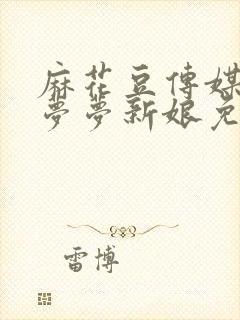 麻花豆傳媒
夢夢新娘免
雷博